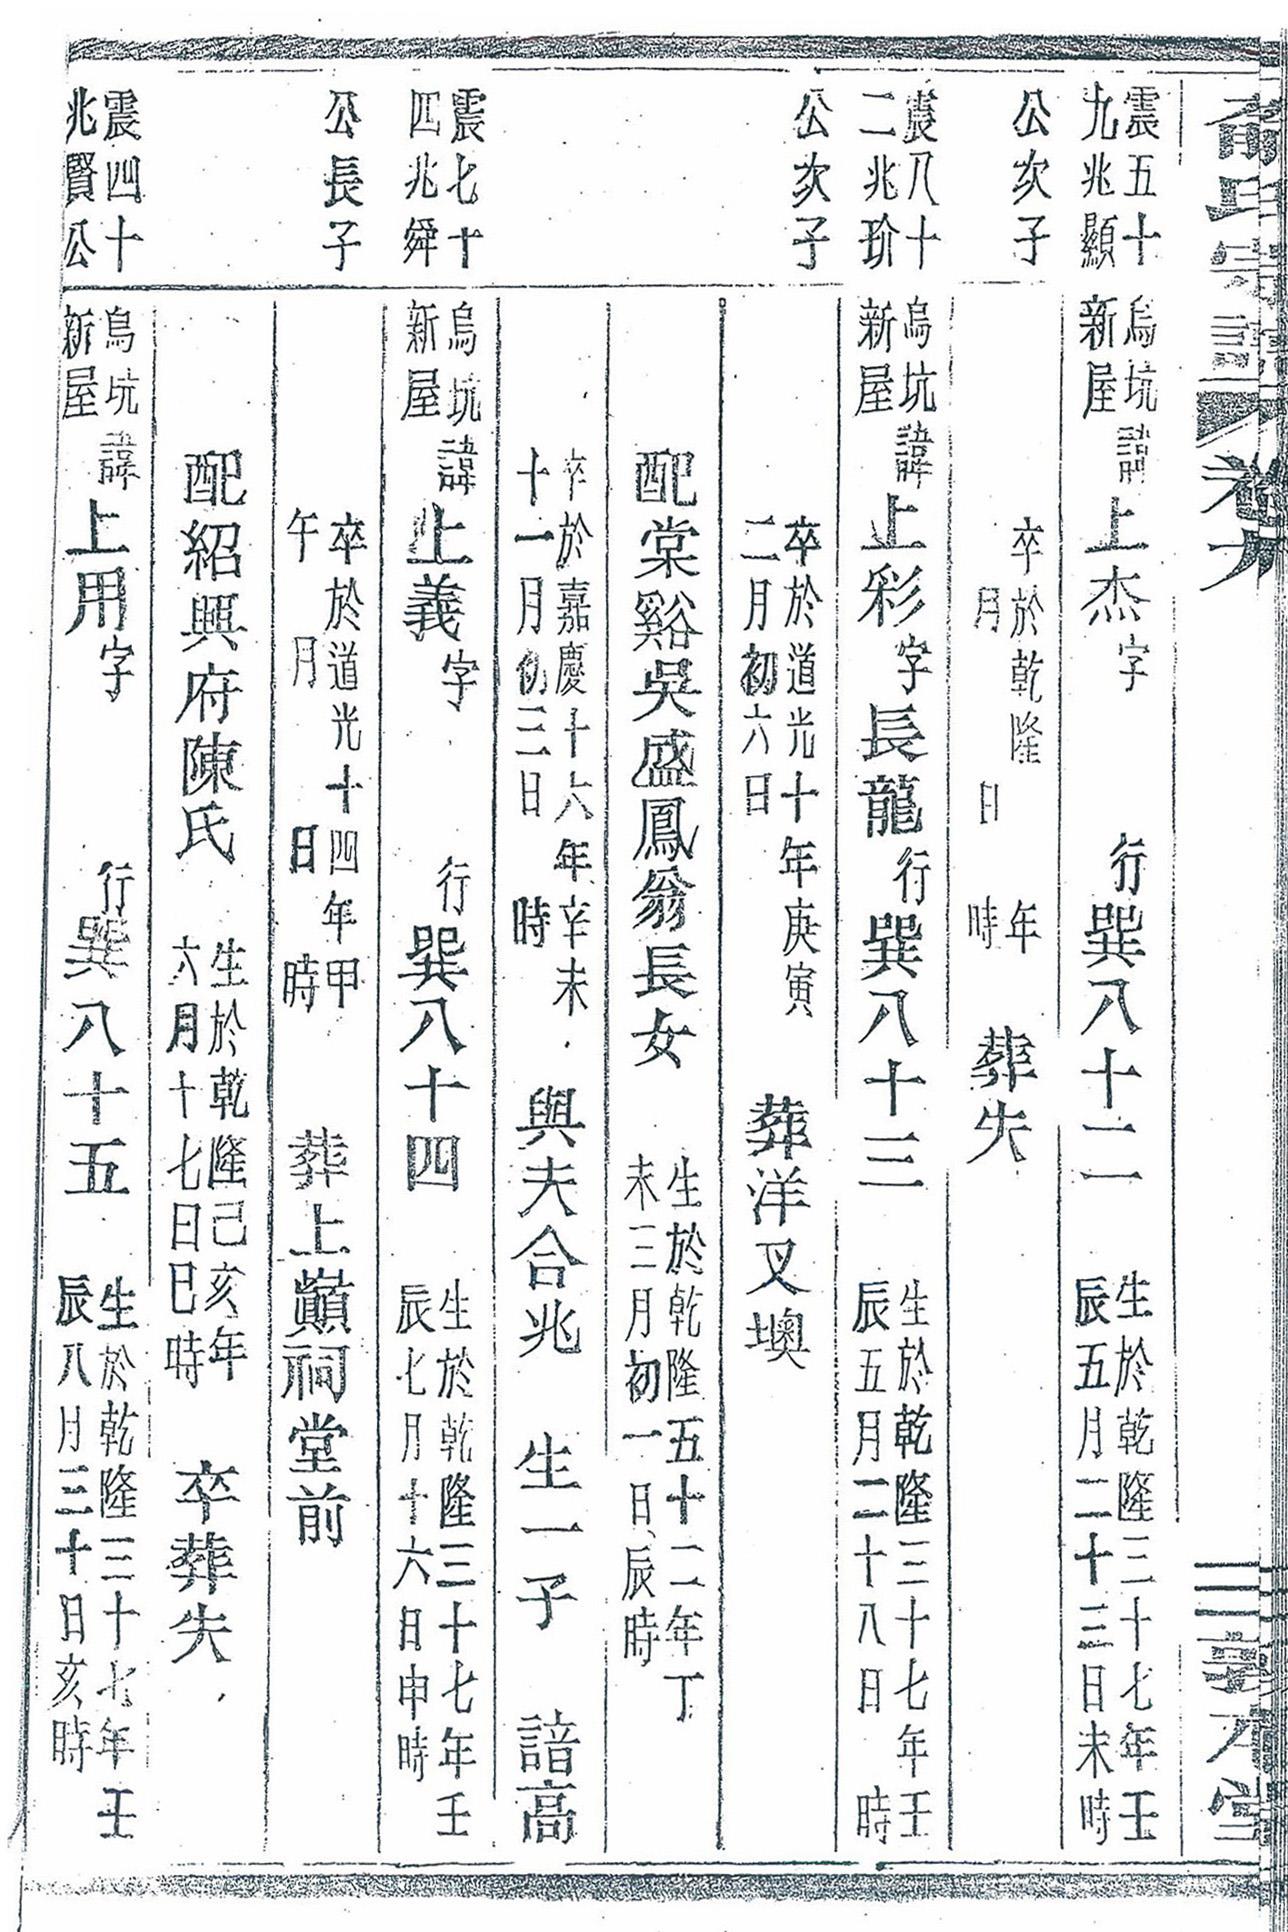 氏宗譜
震五十
九兆顯
公次子
烏坑
新屋
諱上杰字 行巽八十二 生於乾隆三十七年壬
辰五月二十三日未時
卒於乾隆 年
月 日 時 葬失
震八十
二兆玠
公次子
烏坑
新屋
諱上彩字長龍行巽八十三 生於乾隆三十七年壬
辰五月二十八日 時
卒於道光十年庚寅
二月初六日 葬洋叉墺
配棠谿吳盛鳳翁長女 生於乾隆五十二年丁
未三月初一日辰時
卒於嘉慶十六年辛未
十一月初三日 時 與夫合兆 生一子 諳高
震七十
四兆舜
公長子
烏坑
新屋
諱上義字 行巽八十四 生於乾隆三十七年壬
辰七月十六日申時
卒於道光十四年甲
午 月 日 時 葬上巔祠堂前
配紹興府陳氏 生於乾隆己亥年
六月十七日巳時 卒葬失
震四十
兆賢公
烏坑
新屋
諱上用字 行巽八十五 生於乾隆三十七年壬
辰八月三十日亥時